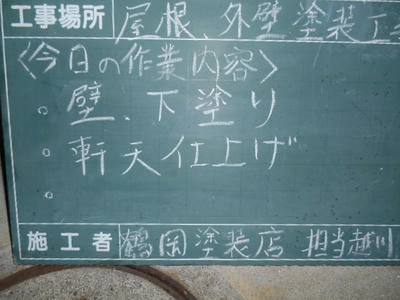 工事場所 屋根、外壁塗装工
〈今日の作業内容〉
。壁、下塗り
。軒天仕上げ
。
施工者 鶴岡塗装店 担当越川